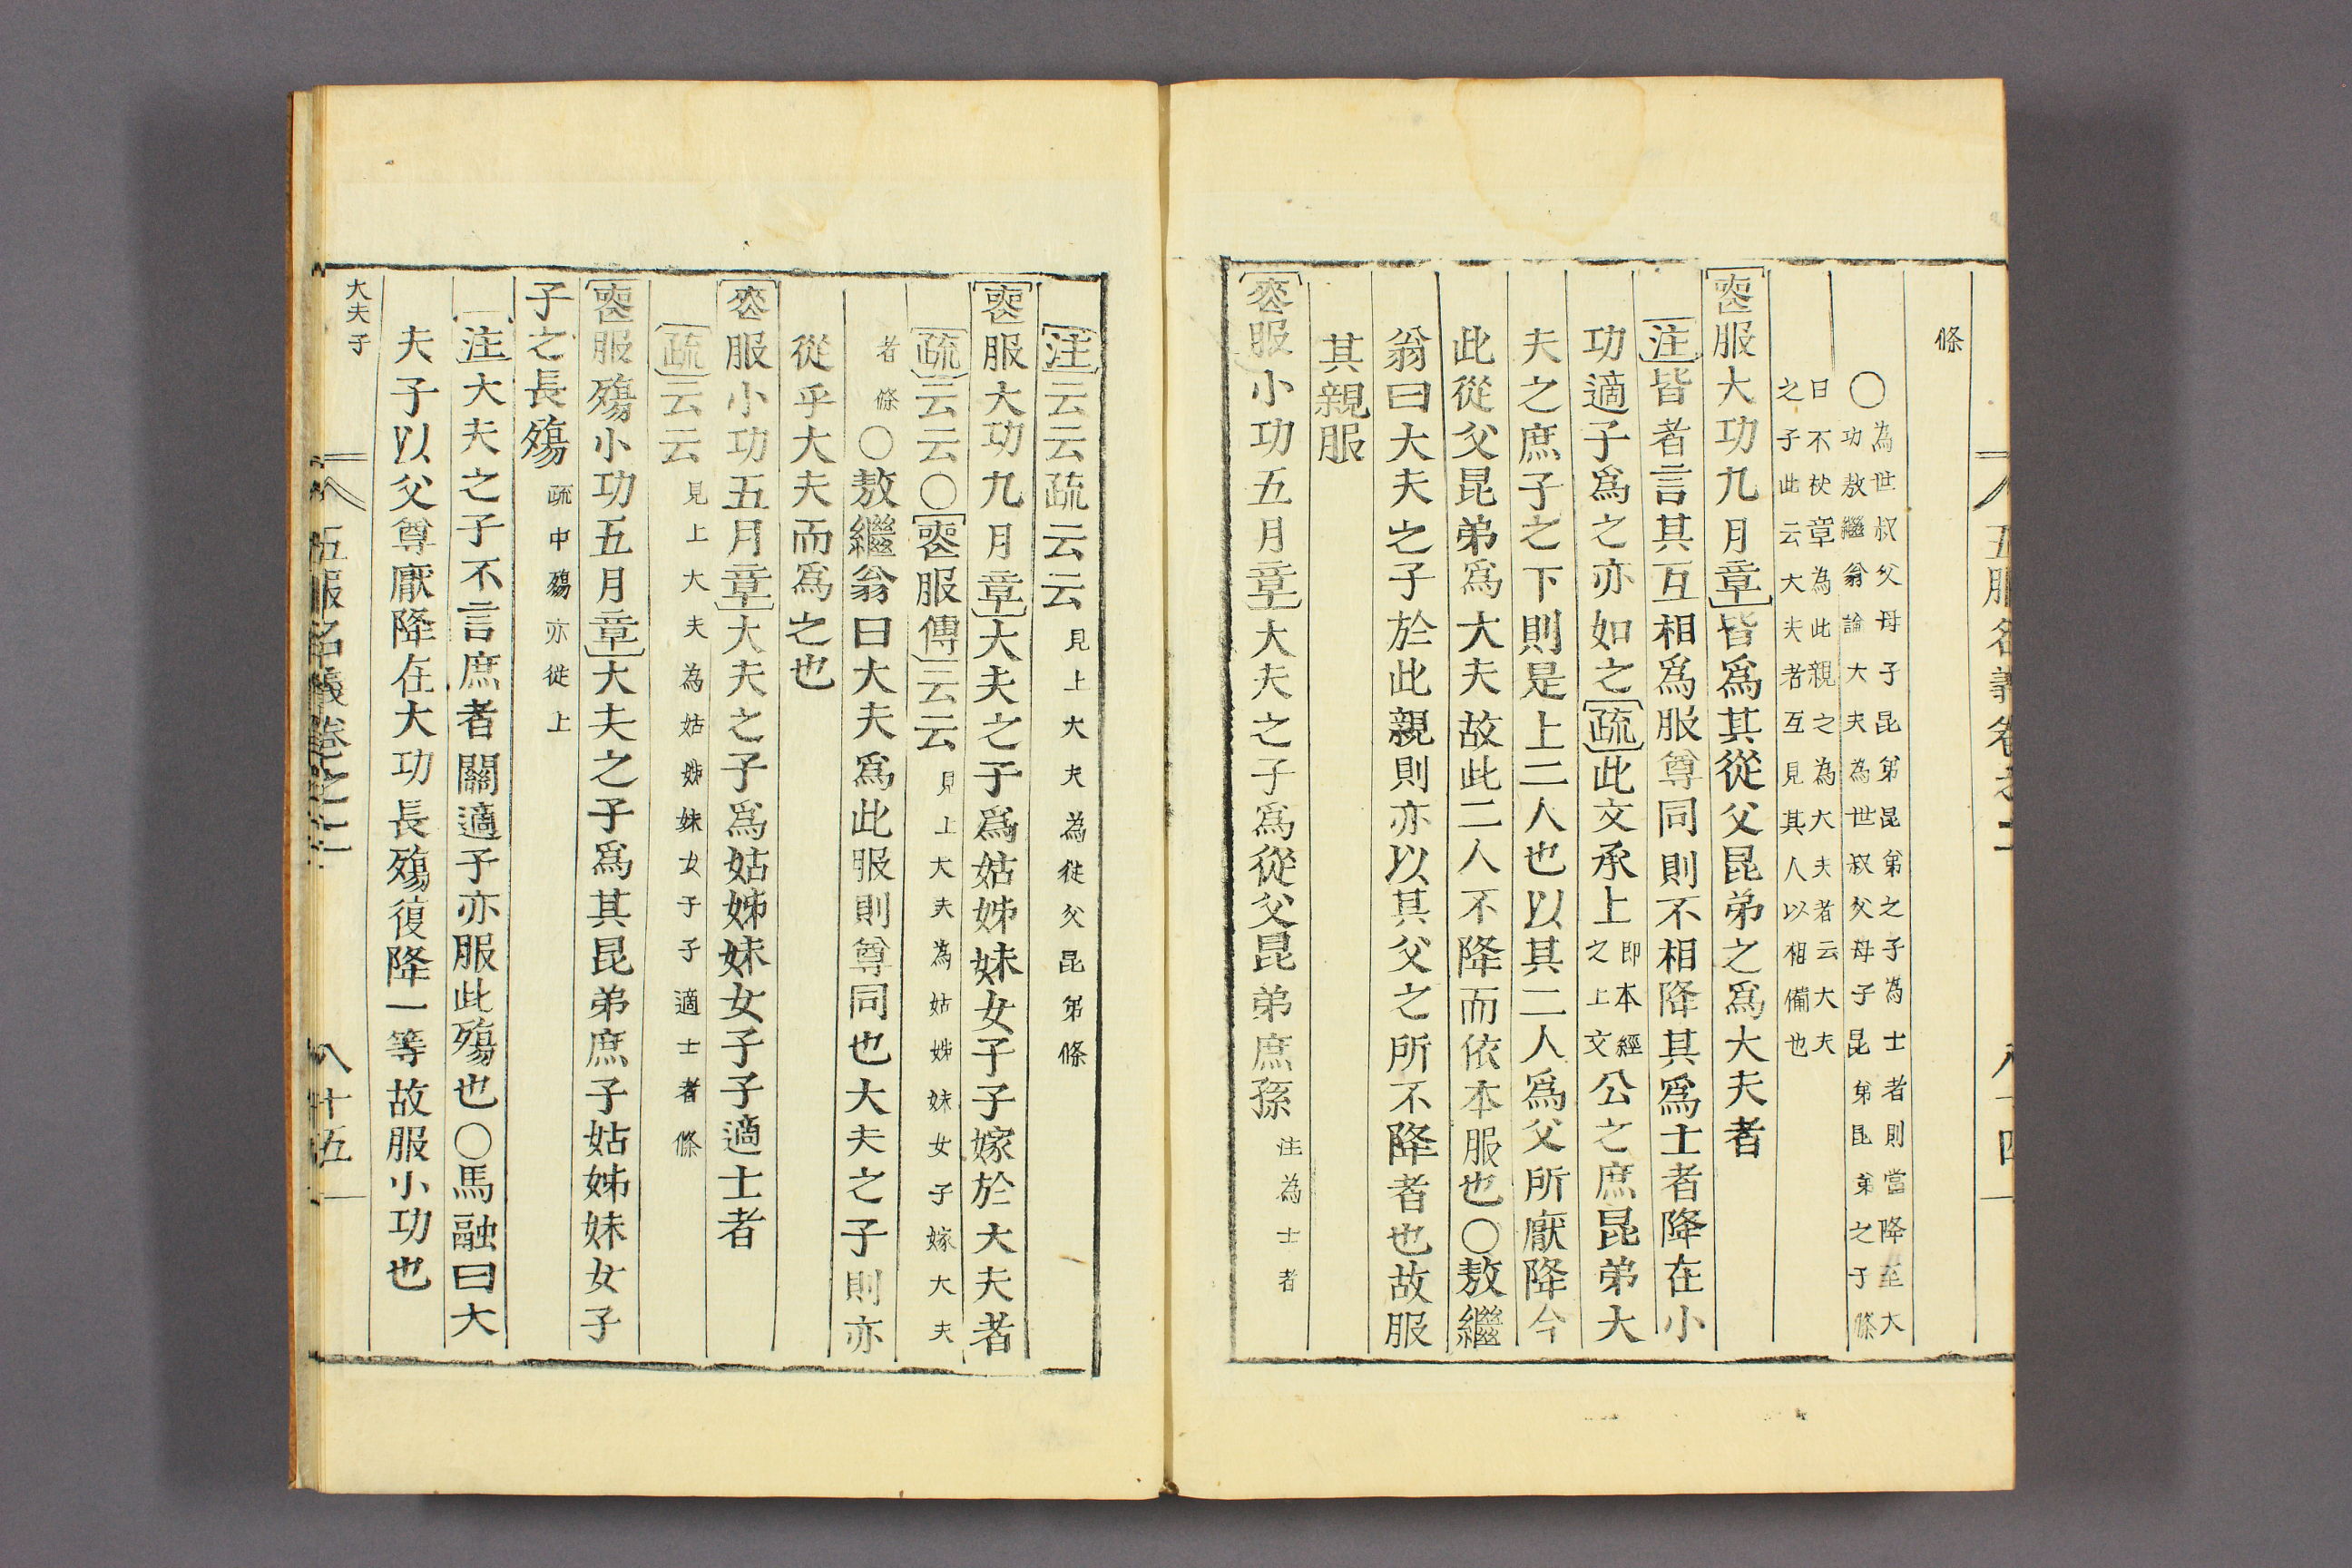 五服名義卷之二 八十四
條
〇為世叔父母子昆弟昆弟之子為士者則當降至大
功敖繼翁論大夫為世叔父母子昆弟昆弟之子條
曰不杖章為此親之為大夫者云大夫
之子此云大夫者互見其人以相備也
喪服大功九月章皆爲其從父昆弟之爲大夫者
注皆者言其互相爲服尊同則不相降其爲士者降在小
功適子爲之亦如之疏此文承上即本經之上文公之庶昆弟大
夫之庶子之下則是上二人也以其二人爲父所厭降今
此從父昆弟爲大夫故此二人不降而依本服也〇敖繼
翁曰大夫之子於此親則亦以其父之所不降者也故服
其親服
喪服小功五月章大夫之子爲從父昆弟庶孫注為士者
注云云疏云云見上大夫為從父昆弟條
喪服大功九月章大夫之子爲姑姊妹女子子嫁於大夫者
疏云云〇喪服傳云云見上大夫為姑姊妹女子嫁大夫
者條〇敖繼翁曰大夫爲此服則尊同也大夫之子則亦
從乎大夫而爲之也
喪服小功五月章大夫之子爲姑姊妹女子子適士者
疏云云見上大夫為姑姊妹女子子適士者條
喪服殤小功五月章大夫之子爲其昆弟庶子姑姊妹女子
子之長殤疏中殤亦從上
注大夫之子不言庶者關適子亦服此殤也〇馬融曰大
夫子以父尊厭降在大功長殤復降一等故服小功也
大夫子
五服名義卷之二 八十五